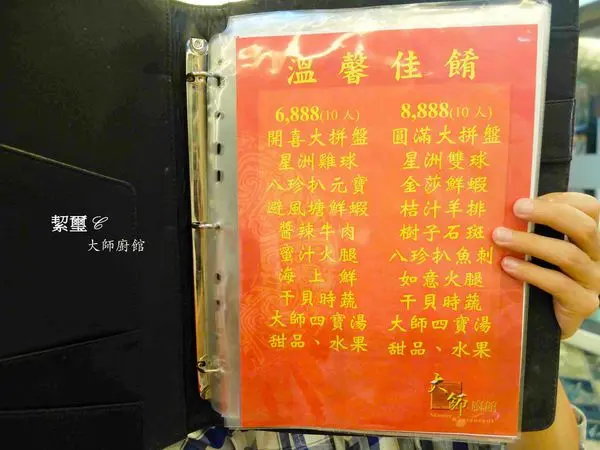 溫馨佳餚
6,888(10人)
開喜大拼盤
星洲雞球
八珍扒元寶
避風塘鮮蝦
醬辣牛肉
蜜汁火腿
海上鮮
干貝時蔬
大師四寶湯
甜品、水果
8,888(10人)
圓滿大拼盤
星洲雙球
金莎鮮蝦
桔汁羊排
樹子石斑
八珍扒魚刺
如意火腿
干貝時蔬
大師四寶湯
甜品、水果
大師廚館
Restaurant
絜璽C
大師廚館